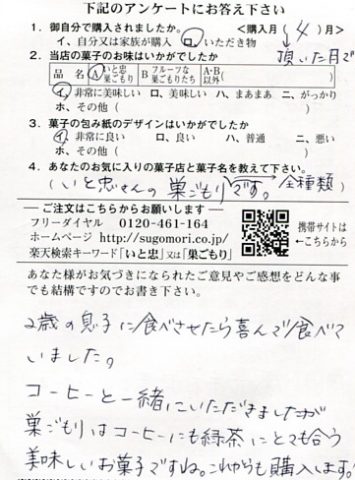 下記のアンケートにお答え下さい
1. 御自分で購入されましたか。 <購入月(4)月>
イ、自分又は家族が購入 ロ、いただき物 頂いた月で
2. 当店の菓子のお味はいかがでしたか
品 名 A いと忠巣ごもり B フルーツな巣ごもりたち A・B以外( )
イ、非常に美味しい ロ、美味しい ハ、まあまあ ニ、がっかり
ホ、その他( )
3. 菓子の包み紙のデザインはいかがでしたか
イ、非常に良い ロ、良い ハ、普通 ニ、悪い
ホ、その他( )
4. あなたのお気に入りの菓子店と菓子名を教えて下さい。
(いと忠さんの巣ごもりです。全種類)
ご注文はこちらからお願いします
フリーダイヤル 0120-461-164
ホームページ http://sugomori.co.jp/
楽天検索キーワード「いと忠」又は「巣ごもり」
携帯サイトは
←こちらから
あなた様がお気づきになられたご意見やご感想をどんな事
でも結構ですのでお書き下さい。
2歳の息子に食べさせたら喜んで食べて
いました。
コーヒーと一緒にいただきましたが
巣ごもりはコーヒーにも緑茶にとても合う
美味しいお菓子ですね。これからも購入します。